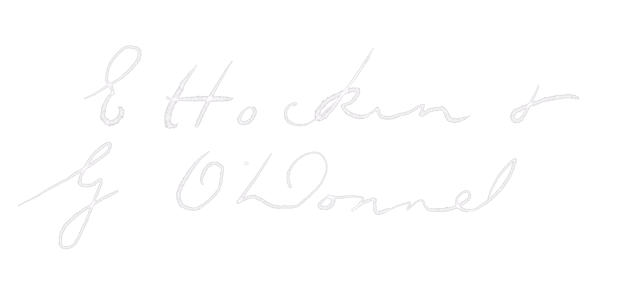 E Hockin &
G O'Donnel